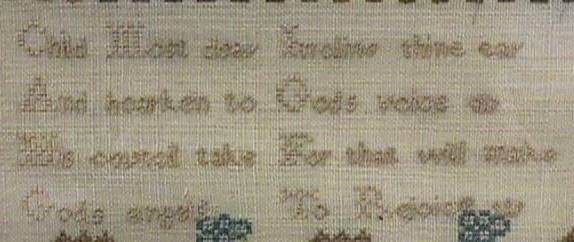 Child Most dear Incline thine ear
And hearken to Gods voice
His counsel take For that will make
Gods angels To Rejoice